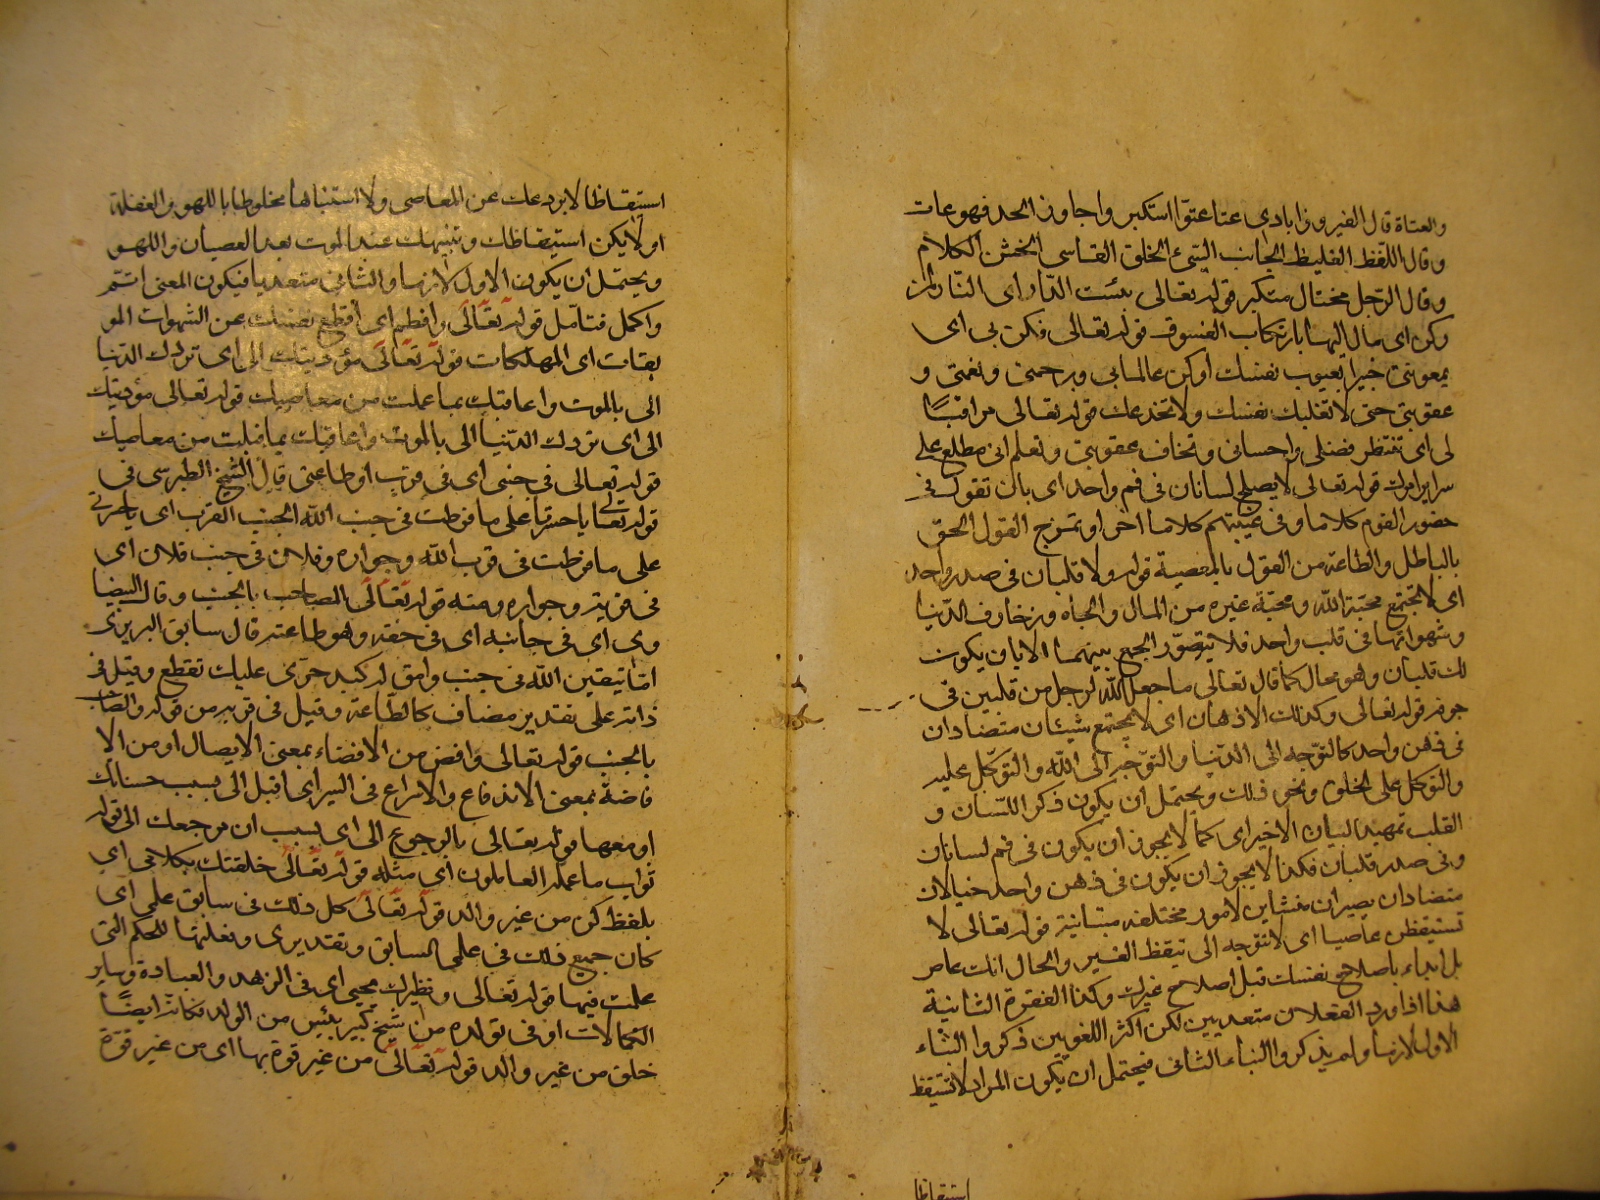 والعتاة قال الفيروزابادى عتا عتوّا استكبر واجاوز الحد فهو عات
وقال اللفظ الغليظ الجانب السّيئ الخلق القاسى الخشن الكلام
وقال الرّجل مختال متكبر قوله تعالى بئست الدّار اى النّار لمن
ركن اى مال اليها بارتكاب الفسوق قوله تعالى فكن بى اى
بمعونتى خيرا بعيوب نفسك او كن عالما بى وبرحمتى ونعمتى و
عقوبتى حتى لا تغلبك نفسك ولا تخدعك قوله تعالى مراقبًا
لى اى تنتظر فضلى واحسانى وتخاف عقوبتى وتعلم انى مطلع على
سرايرك قوله تعالى لا يصلح لسانان فى فم واحد اى بان تقول فى
حضور القوم كلاما وفى غيبتهم كلاما اخر او تمزج القول الحق
بالباطل والطاعة من القول بالمعصية قوله ولا قلبان فى صدر واحد
اى لا تجتمع محبّة اللّه ومحبّة غيره من المال والجاه وزخارف الدّنيا
وشهواتها فى قلب واحد فلا يتصوّر الجمع بينهما الا بان يكون
لك قلبان وهو محال كما قال تعالى ما جعل اللّه لرجل من قلبين فى
جوفه قوله تعالى وكذلك الاذهان اى لا يجتمع شيئان متضادان
فى ذهن واحد كالتوّجه الى الدّنيا والتوّجّه الى اللّه والتوكّل عليه
والتوكل على الخلق ونحو ذلك ويحتمل ان يكون ذكر اللّسان و
القلب تمهيدا لبيان الاخير اى كما لا يجوز ان يكون فى فم لسانان
وفى صدر قلبان فكذا لا يجوز ان يكون فى ذهن واحد خيالان
متضادان يصيران منشاين لامور مختلفه متباينة قوله تعالى لا
تستيقظن عاصيا اى لا تتوجه الى تيقظ الغير والحال انك عاص
بل ابداء باصلاح نفسك قبل اصلاح غيرك وكذا الفقرة الثانية
هذا اذا ورد الفعلان متعديين لكن اكثر اللغويين ذكروا البناء
الاول لازما ولم يذكروا البناء الثانى فيحتمل ان يكون المراد لا تستيقظ
استيقاظا
استيقاظا لا يردعك عن المعاصى ولا استنباها مخلوطا باللهو والغفلة
او لا يكن استيقاظك وتنبهك عند الموت بعد العصيان واللهو
ويحتمل ان يكون الاول لازما والثانى متعديا فيكون المعنى اتمّ
واكمل فتامّل قوله تعالى وافطم اى أقطع نفسك عن الشهوات المو
بقات اى المهلكات قوله تعالى مؤديتك الى اى تردك الدّنيا
الى بالموت واعاقبك بما عملت من معاصيك قوله تعالى مؤديتك
الى اى تردك الدّنيا الى بالموت واعاقبك بما قبلت من معاصيك
قوله تعالى فى جنبى اى فى قرب او طاعتى قال الشّيخ الطبرسى فى
قوله تعالى يا حسرتا على ما فرطت فى جنب اللّه الجنب القرب اى يا حسرتى
على ما فرطت فى قرب اللّه وجواره وفلان فى جنب فلان اى
فى قربه وجواره ومنه قوله تعالى الصاحب بالجنب وقال البيضا
وى اى فى جانبه اى فى حقه وهو طاعته قال سابق البربرى
اما تتقين اللّه فى جنب وامق له كبد حرّى عليك تقطع وقيل فى
ذاته على تقدير مضاف كالطّاعة وقيل فى قربه من قوله والصّاحب
بالجنب قوله تعالى وافض من الافضاء بمعنى الايصال او من الا
فاضة بمعنى الاندفاع والاسراع فى السير اى اقبل الى بسبب حسناتك
او معها قوله تعالى بالرجوع الى اى لسبب ان مرجعك الى قوله
ثواب ما عمله العاملون اى مثله قوله تعالى خلقتك بكلامى اى
بلفظ كن من غير والد قوله تعالى كل ذلك فى سابق علمى اى
كان جميع ذلك فى علمى السابق وتقديرى وفعلتها للحكم التى
علمت فيها قوله تعالى ونظيرك يحيى اى فى الزهد والعبادة وساير
الكمالات او فى تولده من شيخ كبير يئس من الولد فكانّ ايضًا
خلق من غير والد قوله تعالى من غير قوة بها اى من غير قوّة